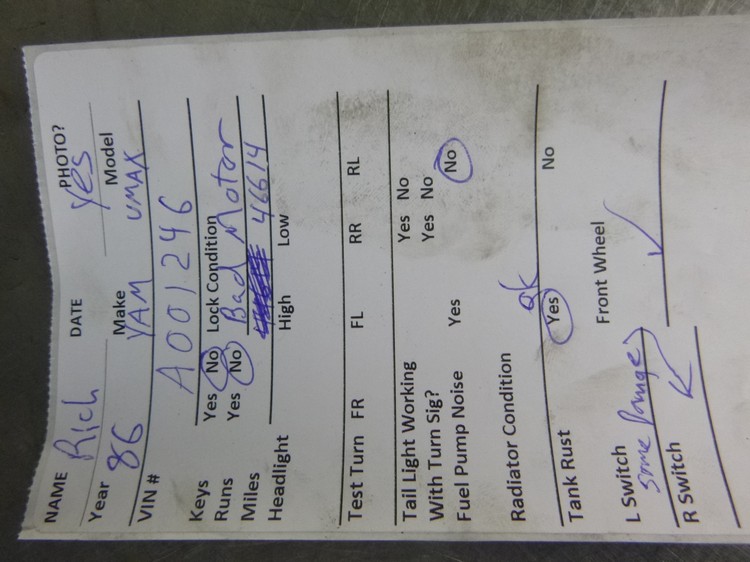 NAME Rich DATE PHOTO? Yes
Year 86 Make YAM Model VMAX
VIN # A001246
Keys Yes No Lock Condition
Runs Yes No Bad Motor
Miles 46614
Headlight High Low
Test Turn FR FL RR RL
Tail Light Working Yes No
With Turn Sig? Yes No
Fuel Pump Noise Yes No
Radiator Condition ok
Tank Rust Yes No
L Switch some Front Wheel
R Switch